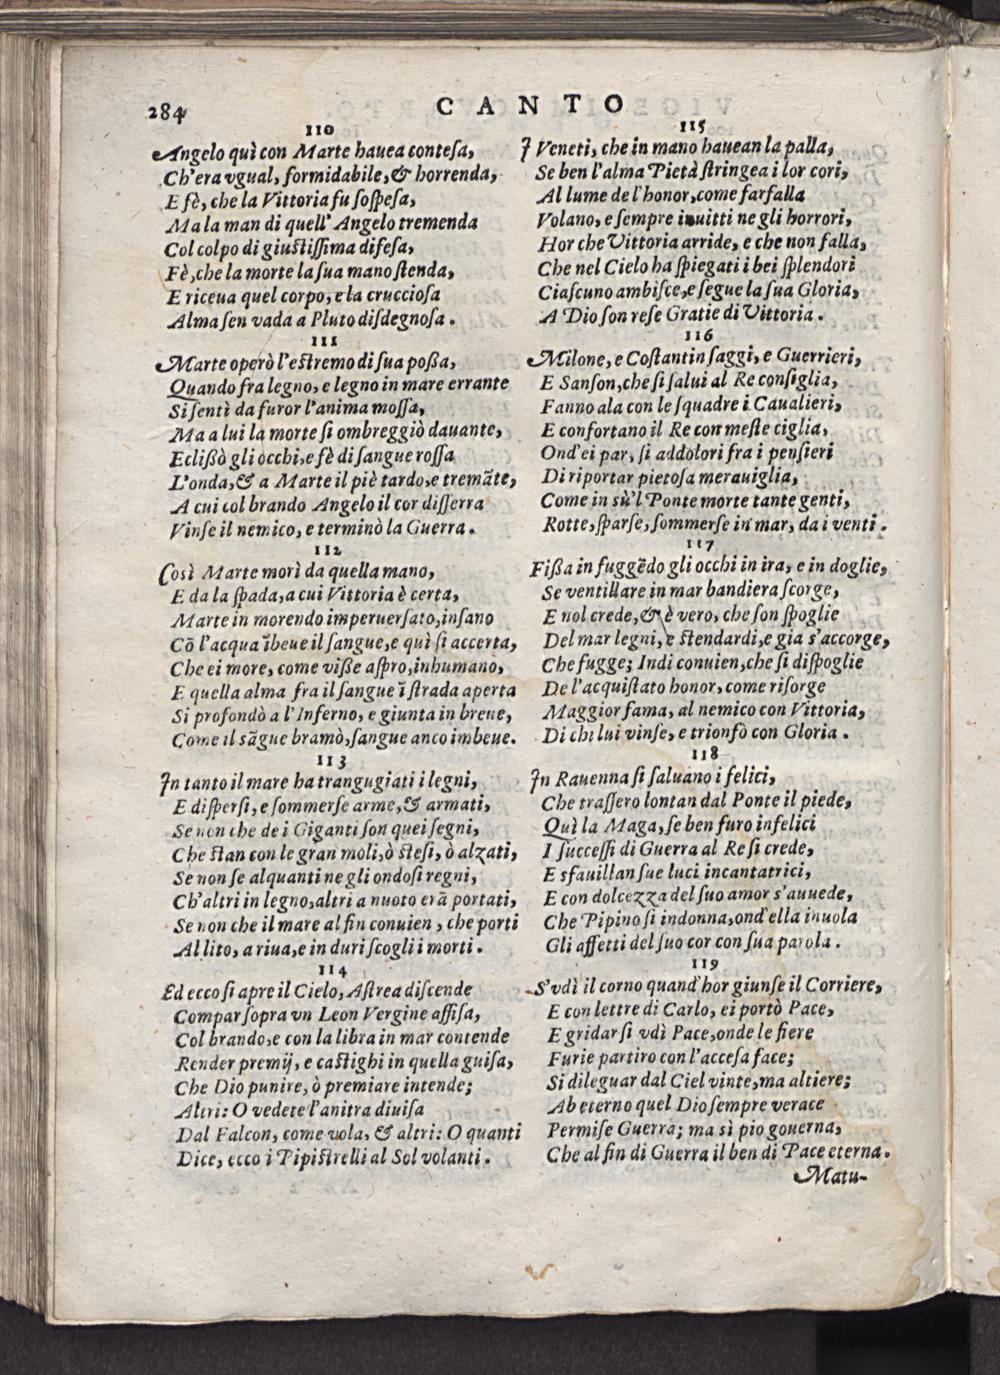 284
CANTO
110
Angelo quì con Marte hauea contesa,
Ch'era vgual, formidabile, & horrenda,
E fè, che la Vittoria fu sospesa,
Ma la man di quell' Angelo tremenda
Col colpo di giustissima difesa,
Fè, che la morte la sua mano stenda,
E riceua quel corpo, e la crucciosa
Alma sen vada a Pluto disdegnosa.
111
Marte operò l'estremo di sua possa,
Quando fra legno, e legno in mare errante
Si sentì da furor l'anima mossa,
Ma a lui la morte si ombreggiò dauante,
Eclissò gli occhi, e fè di sangue rossa
L'onda, & a Marte il piè tardo, e tremãte,
A cui col brando Angelo il cor disserra
Vinse il nemico, e terminò la Guerra.
112
Così Marte morì da quella mano,
E da la spada, a cui Vittoria è certa,
Marte in morendo imperuersato, insano
Cõ l'acqua ĩbeue il sangue, e quì si accerta,
Che ei more, come visse aspro, inhumano,
E quella alma fra il sangue ĩ strada aperta
Si profondò a l'Inferno, e giunta in breue,
Come il sãgue bramò, sangue anco imbeue.
113
In tanto il mare ha trangugiati i legni,
E dispersi, e sommerse arme, & armati,
Se non che de i Giganti son quei segni,
Che stan con le gran moli, ò stesi, ò alzati,
Se non se alquanti ne gli ondosi regni,
Ch'altri in legno, altri a nuoto erã portati,
Se non che il mare al fin conuien, che porti
Al lito, a riua, e in duri scogli i morti.
114
Ed ecco si apre il Cielo, Astrea discende
Compar sopra vn Leon Vergine assisa,
Col brando, e con la libra in mar contende
Render premij, e castighi in quella guisa,
Che Dio punire, ò premiare intende;
Altri: O vedete l'anitra diuisa
Dal Falcon, come vola, & altri: O quanti
Dice, ecco i Pipistrelli al Sol volanti.
115
I Veneti, che in mano hauean la palla,
Se ben l'alma Pietà stringea i lor cori,
Al lume de l'honor, come farfalla
Volano, e sempre inuitti ne gli horrori,
Hor che Vittoria arride, e che non falla,
Che nel Cielo ha spiegati i bei splendori
Ciascuno ambisce, e segue la sua Gloria,
A Dio son rese Gratie di Vittoria.
116
Milone, e Costantin saggi, e Guerrieri,
E Sanson, che si salui al Re consiglia,
Fanno ala con le squadre i Caualieri,
E confortano il Re con meste ciglia,
Ond' ei par, si addolori fra i pensieri
Di riportar pietosa merauiglia,
Come in sù'l Ponte morte tante genti,
Rotte, sparse, sommerse in mar, da i venti.
117
Fissa in fuggẽdo gli occhi in ira, e in doglie,
Se ventillare in mar bandiera scorge,
E nol crede, & è vero, che son spoglie
Del mar legni, e stendardi, e gia s'accorge,
Che fugge; Indi conuien, che si dispoglie
De l'acquistato honor, come risorge
Maggior fama, al nemico con Vittoria,
Di chi lui vinse, e trionfò con Gloria.
118
In Rauenna si saluano i felici,
Che trassero lontan dal Ponte il piede,
Quì la Maga, se ben furo infelici
I successi di Guerra al Re si crede,
E sfauillan sue luci incantatrici,
E con dolcezza del suo amor s'auuede,
Che Pipino si indonna, ond' ella inuola
Gli affetti del suo cor con sua parola.
119
S'vdì il corno quand' hor giunse il Corriere,
E con lettre di Carlo, ei portò Pace,
E gridar si vdì Pace, onde le fiere
Furie partiro con l'accesa face;
Si dileguar dal Ciel vinte, ma altiere;
Ab eterno quel Dio sempre verace
Permise Guerra; ma sì pio gouerna,
Che al fin di Guerra il ben di Pace eterna.
Matu-